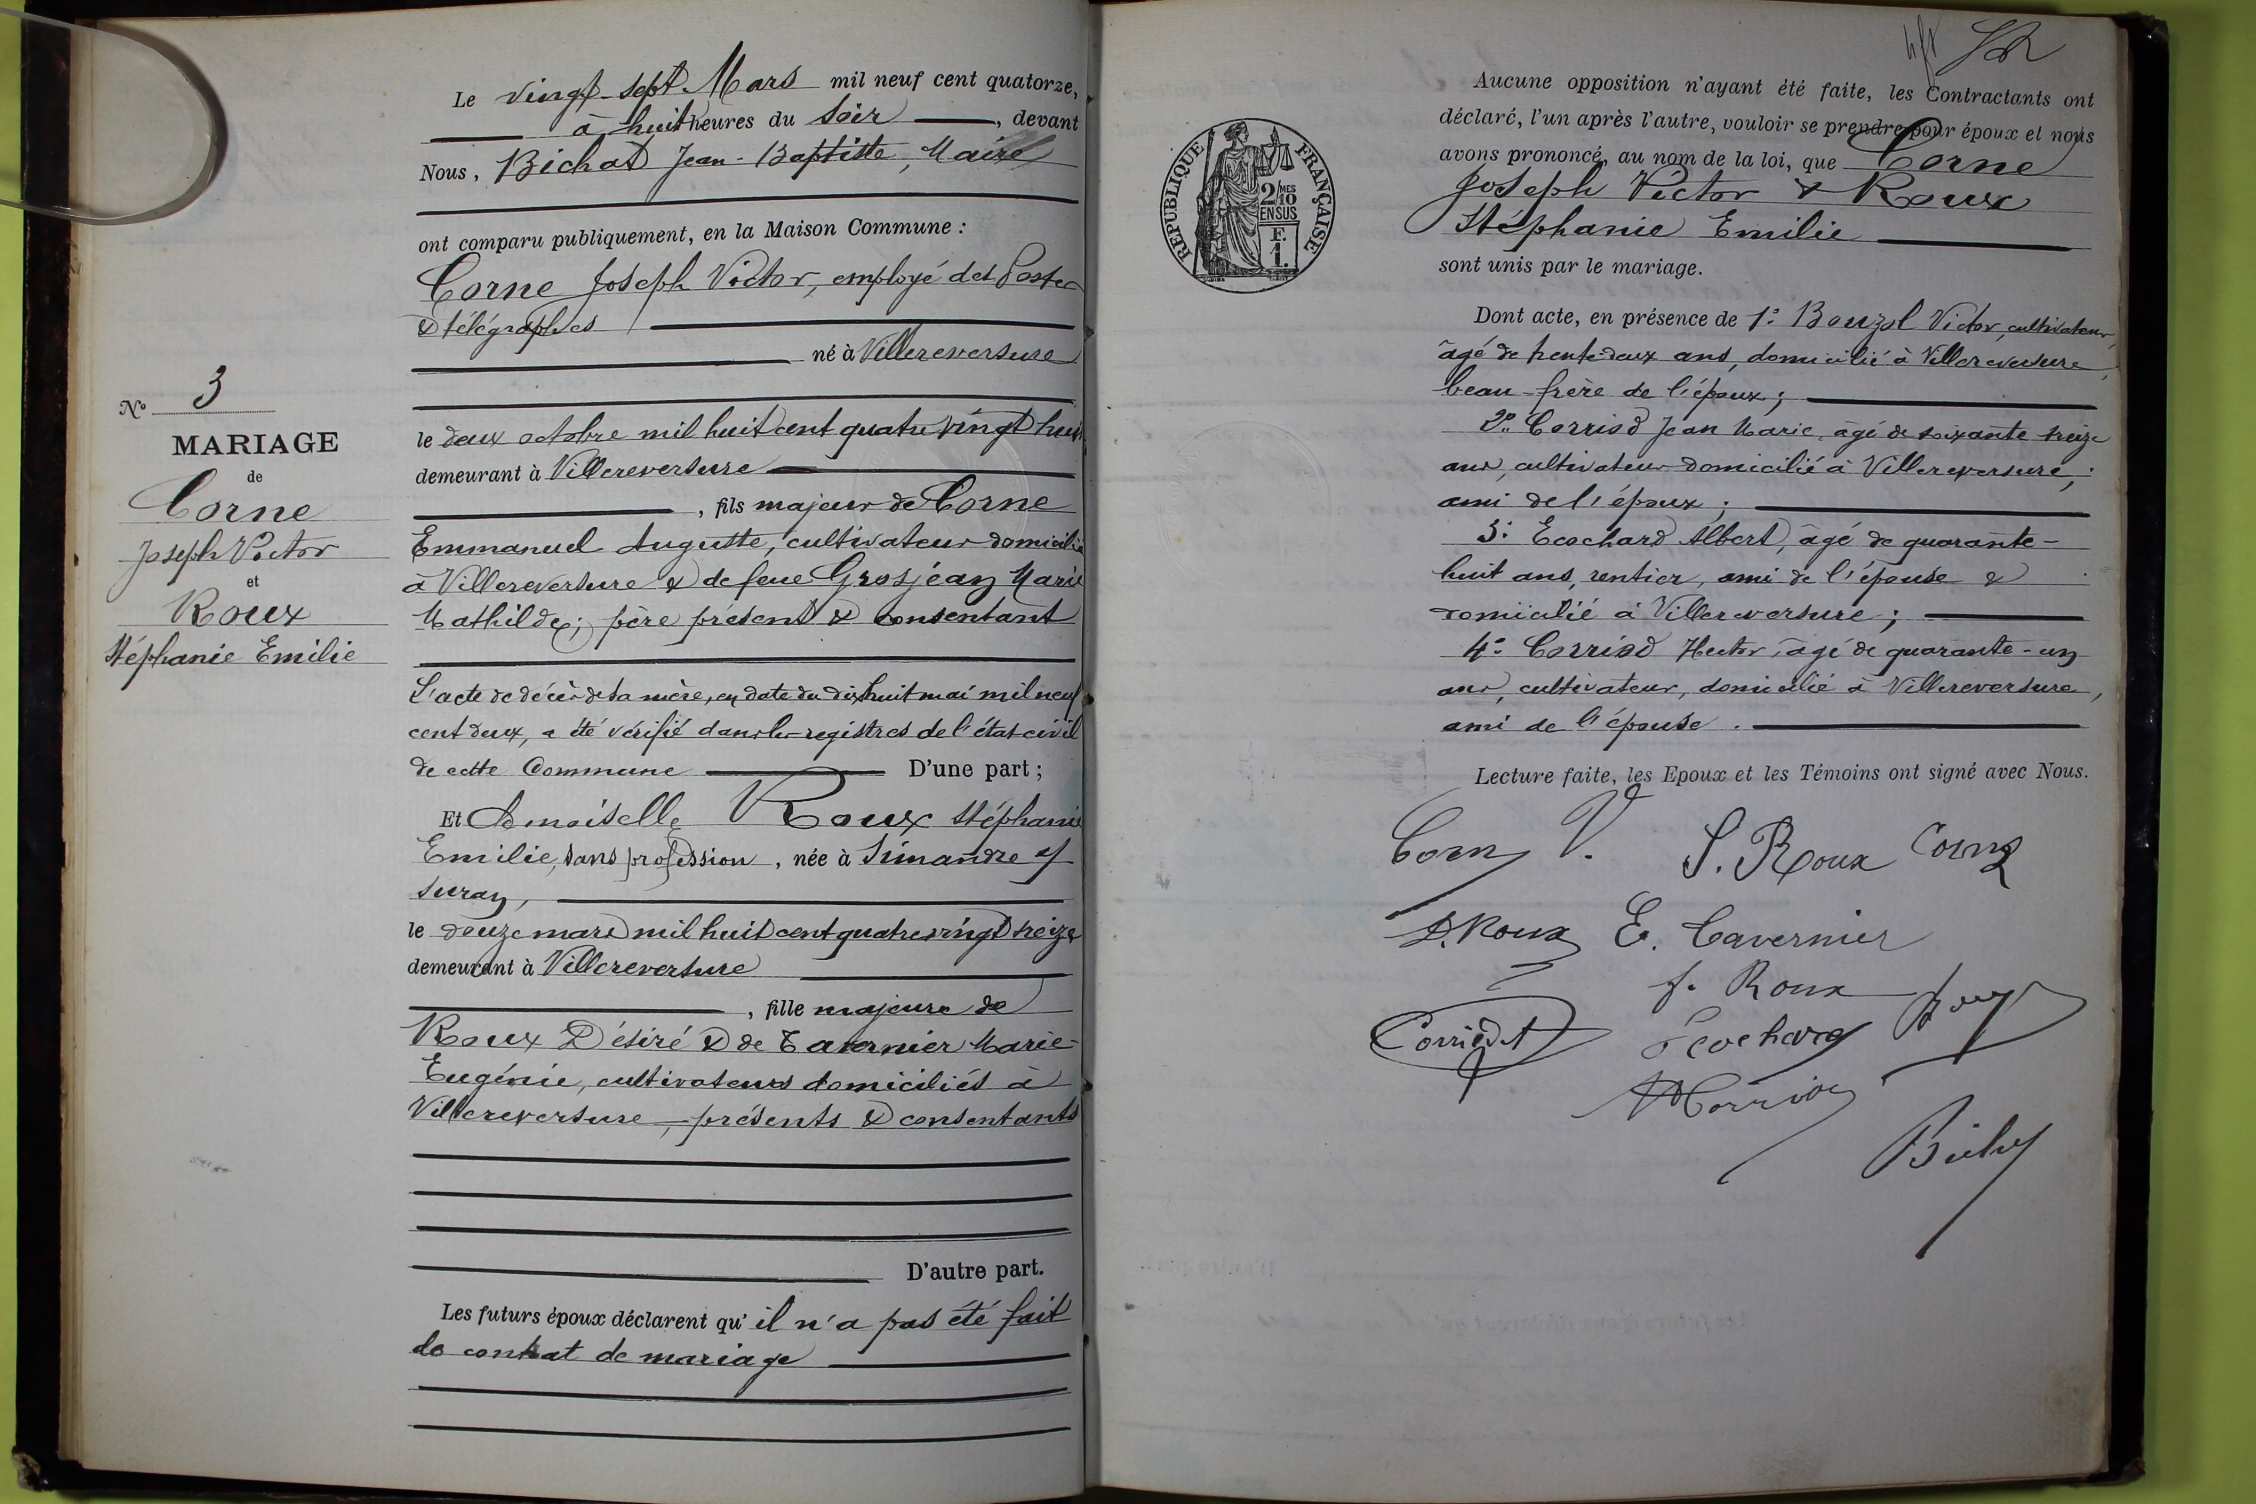 Le vingt-sept Mars mil neuf cent quatorze,
à huit heures du soir, devant
Nous, Bichat Jean-Baptiste, Maire
ont comparu publiquement, en la Maison Commune :
Corne Joseph Victor, employé des Postes
& télégraphes
né à Villereversure
le deux octobre mil huit cent quatre vingt huit
demeurant à Villereversure
, fils majeur de Corne
Emmanuel Auguste, cultivateur domicilié
à Villereversure & de feue Grosjean Marie
Mathilde; père présent & consentant
L'acte de décès de sa mère, en date du dix huit mai mil neuf
cent deux, a été vérifié dans les registres de l'état-civil
de cette Commune D'une part ;
Et demoiselle Roux Stéphanie
Emilie, sans profession, née à Simandre s/
Suran,
le douze mars mil huit cent quatre vingt treize
demeurant à Villereversure
, fille majeure de
Roux Désiré & de Tavernier Marie-
Eugénie, cultivateurs domiciliés à
Villereversure, présents & consentants
D'autre part.
Les futurs époux déclarent qu'il n'a pas été fait
de contrat de mariage
No 3
MARIAGE
de
Corne
Joseph Victor
et
Roux
Stéphanie Emilie
REPUBLIQUE FRANÇAISE
2/10 MES
EN SUS
F.
1.
Aucune opposition n'ayant été faite, les Contractants ont
déclaré, l'un après l'autre, vouloir se prendre pour époux et nous
avons prononcé, au nom de la loi, que Corne
Joseph Victor & Roux
Stéphanie Emilie
sont unis par le mariage.
Dont acte, en présence de 1° Bouzol Victor, cultivateur,
âgé de trente-deux ans, domicilié à Villereversure,
beau-frère de l'époux;
2° Corriod Jean Marie, âgé de soixante treize
ans, cultivateur domicilié à Villereversure,
ami de l'époux;
3° Ecochard Albert, âgé de quarante-
huit ans, rentier, ami de l'épouse &
domicilié à Villereversure;
4° Corriod Hector, âgé de quarante-un
ans, cultivateur, domicilié à Villereversure,
ami de l'épouse.
Lecture faite, les Epoux et les Témoins ont signé avec Nous.
Corne V. S. Roux Corne
D. Roux E. Tavernier
f. Roux
Corriod Ecochard
H Corriod